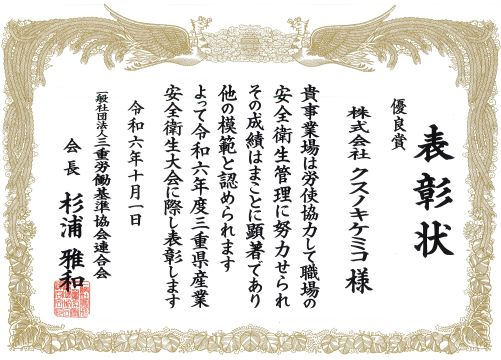 表彰状
優良賞
株式会社 クスノキケミコ 様
貴事業場は労使協力して職場の
安全衛生管理に努力せられ
その成績はまことに顕著であり
他の模範と認められます
よって令和六年度三重県産業
安全衛生大会に際し表彰します
令和六年十月一日
一般社団法人三重労働基準協会連合会
会長 杉浦 雅和